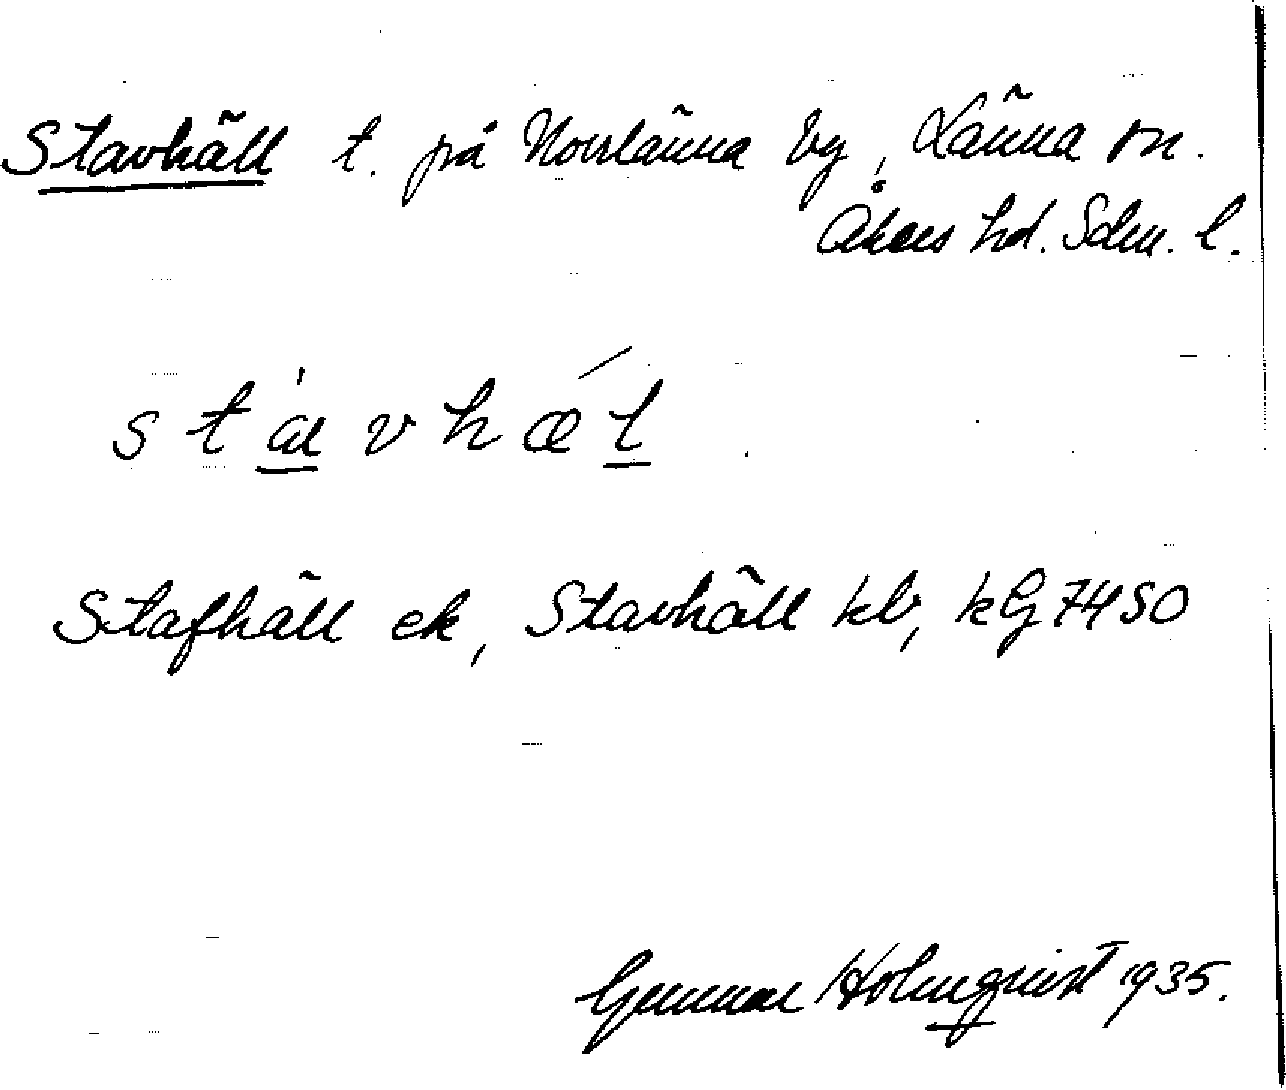 Stavhäll t. på Norrlänna by, Länna sn.
Åkers hd. Sdm. l.
stàvhǽl
Stafhäll ek, Stavhäll kb, kG 7450
Gunnar Holmqvist 1935.